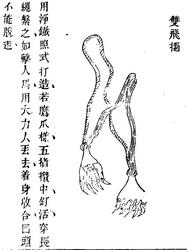 雙飛撾
用淨鐵照式打造若鷹爪樣五指攢中釘活穿長
繩繫之如擊人馬用大力人丟去着身收合回頭
不能脫走